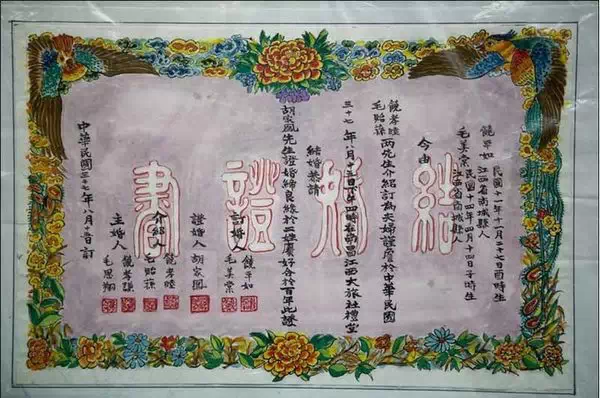 結婚證書
饒平如
民國十一年十一月二十七日酉時生
江西省南城縣人
毛美棠
民國十四年四月十四日子時生
江西省南城縣人
今由
饒孝睦
毛貽蓀
兩先生介紹訂為夫婦謹詹於中華民國
三十七年八月五日四時在南昌江西大旅社禮堂
結婚恭請
胡家鳳先生證婚締良緣於二姓慶好合於百年此證
訂婚人
饒平如
毛美棠
證婚人 胡家鳳
介紹人
饒孝睦
毛貽蓀
主婚人
饒孝謙
毛思翔
中華民國三十七年八月十日訂